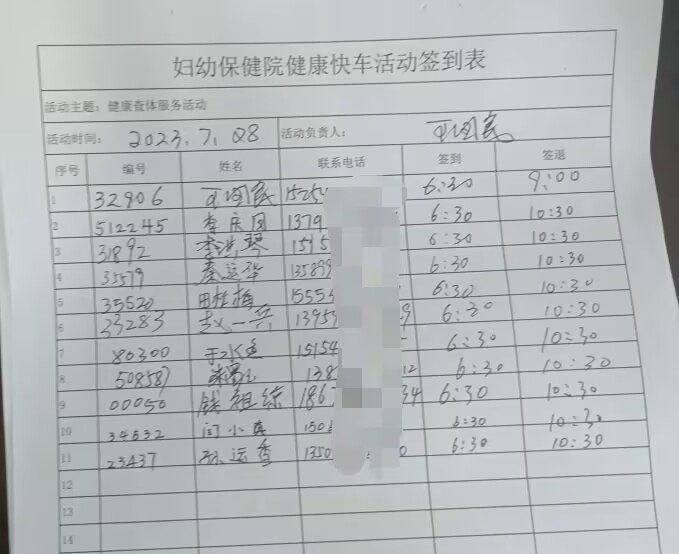 妇幼保健院健康快车活动签到表
活动主题：健康查体服务活动
活动时间： 2023.7.28 活动负责人：
序号 编号 姓名 联系电话 签到 签退
1 32906 15254 6:30 9:00
2 512245 李庆国 1379 6:30 10:30
3 31892 李洪琴 1515 6:30 10:30
4 35579 秦运华 135899 6:30 10:30
5 35520 田桂梅 15555 6:30 10:30
6 33283 赵一兵 13953 9 6:30 10:30
7 80300 于水 15154 6:30 10:30
8 508587 138 12 6:30 10:30
9 00050 钱组练 186 34 6:30 10:30
10 34632 闫小真 150 6:30 10:30
11 23437 孙运香 1350 0 6:30 10:30
12
13
14